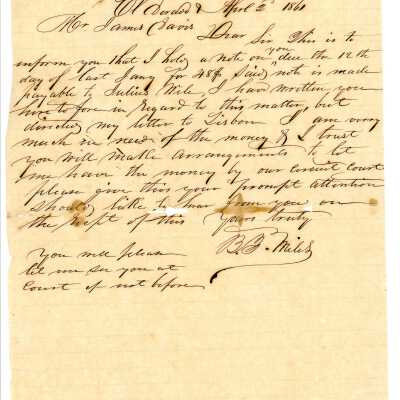 El Dorado Aprl 2d 1861
Mr James Davis
Dear Sir This is to
inform you that I hold a note on you due the 12th
day of last Jany for 48$ Said note is made
payable to Julius Mile, I have written you
here to fore in regard to this matter, but
directed my letter to Lisbon I am very
much in need of the money & I trust
you will make arrangements to let
me have the money by our circuit Court
please give this your prompt attention
should like to hear from you on
the recpt of this Yours truly
B. F. Miles
You will please
let me see you at
Court if not before